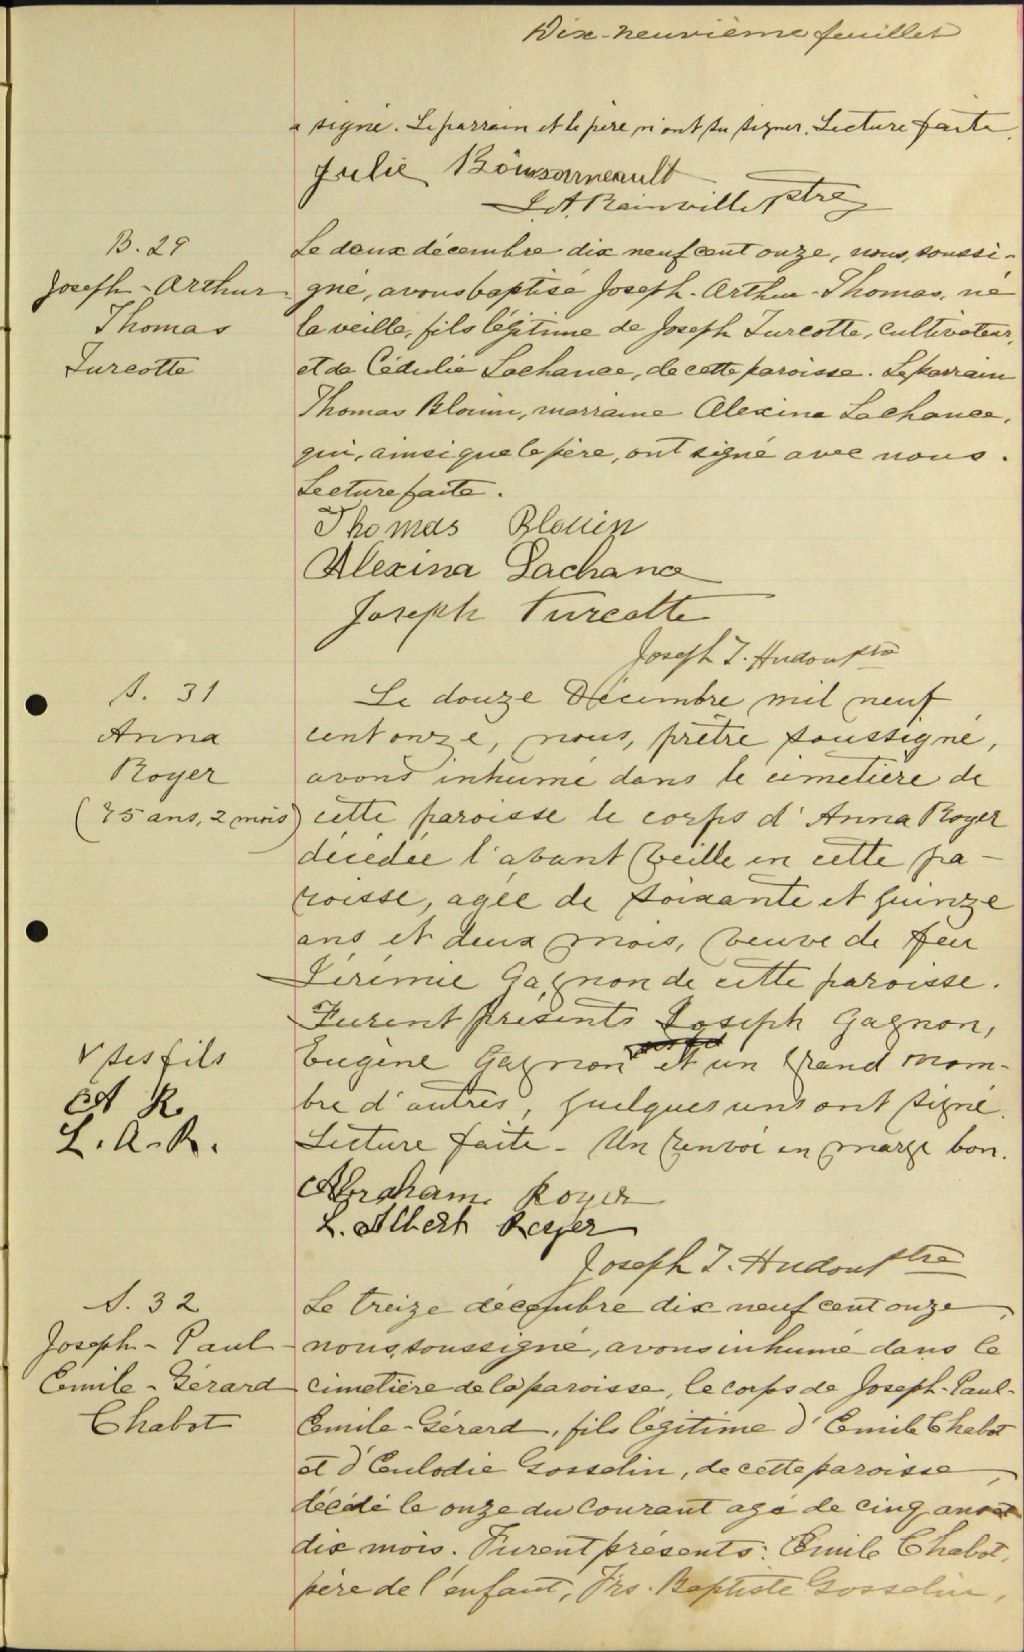 Dix-neuvième feuillet
a signé. Le parrain et le père n'ont su signer. Lecture faite.
Julie Boissonneault
J. A. Rainville Ptre
B. 29
Joseph-Arthur-
Thomas
Turcotte
Le deux décembre dix neuf cent onze, nous, soussi-
gné, avons baptisé Joseph-Arthur-Thomas, né
la veille, fils légitime de Joseph Turcotte, cultivateur,
et de Cédulie Lachance, de cette paroisse. Le parrain
Thomas Blouin, marraine Alexina Lachance,
qui, ainsi que le père, ont signé avec nous.
Lecture faite.
Thomas Blouin
Alexina Lachance
Joseph Turcotte
Joseph T. Hudon ptre
S. 31
Anna
Royer
(75 ans, 2 mois)
Le douze Décembre mil neuf
cent onze, nous, prêtre soussigné,
avons inhumé dans le cimetière de
cette paroisse le corps d'Anna Royer
décédée l'avant veille en cette pa-
roisse, agée de soixante et quinze
ans et deux mois, veuve de feu
Jérémie Gagnon de cette paroisse.
Furent présents Joseph Gagnon,
Eugène Gagnon v et un grand nom-
bre d'autres, quelques uns ont signé.
Lecture faite - Un renvoi en marge bon.
v ses fils
A R.
L. A. R.
Abraham Royer
L. Albert Royer
Joseph T. Hudon Ptre
S. 32
Joseph-Paul-
Emile-Gérard
Chabot
Le treize décembre dix neuf cent onze,
nous, soussigné, avons inhumé dans le
cimetière de la paroisse, le corps de Joseph-Paul-
Emile-Gérard, fils légitime d'Emile Chabot
et d'Eulodie Gosselin, de cette paroisse,
décédé le onze du courant agé de cinq ans et
dix mois. Furent présents: Emile Chabot,
père de l'enfant, Frs. Baptiste Gosselin,